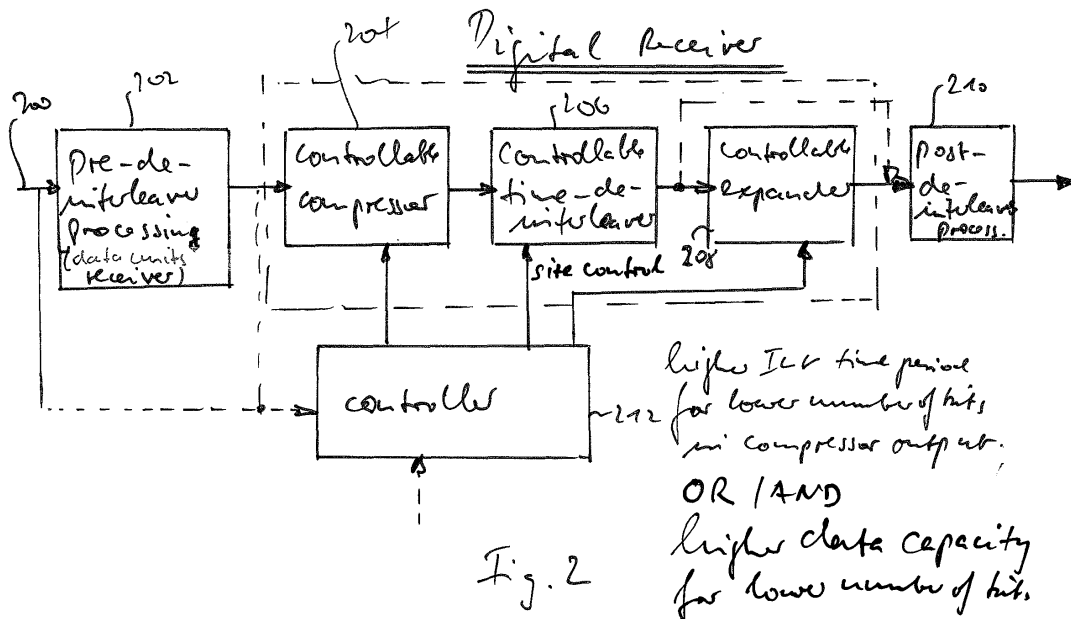 Digital Receiver
200
202
204
206
210
pre-de-
interleaver
processing
(data units
receiver)
controllable
compressor
controllable
time-de-
interleaver
controllable
expander
208
post-
de-
interleaver
process.
size control
controller
212
higher ILV time period
for lower number of bits
in compressor output.
OR / AND
higher data capacity
for lower number of bits
Fig. 2